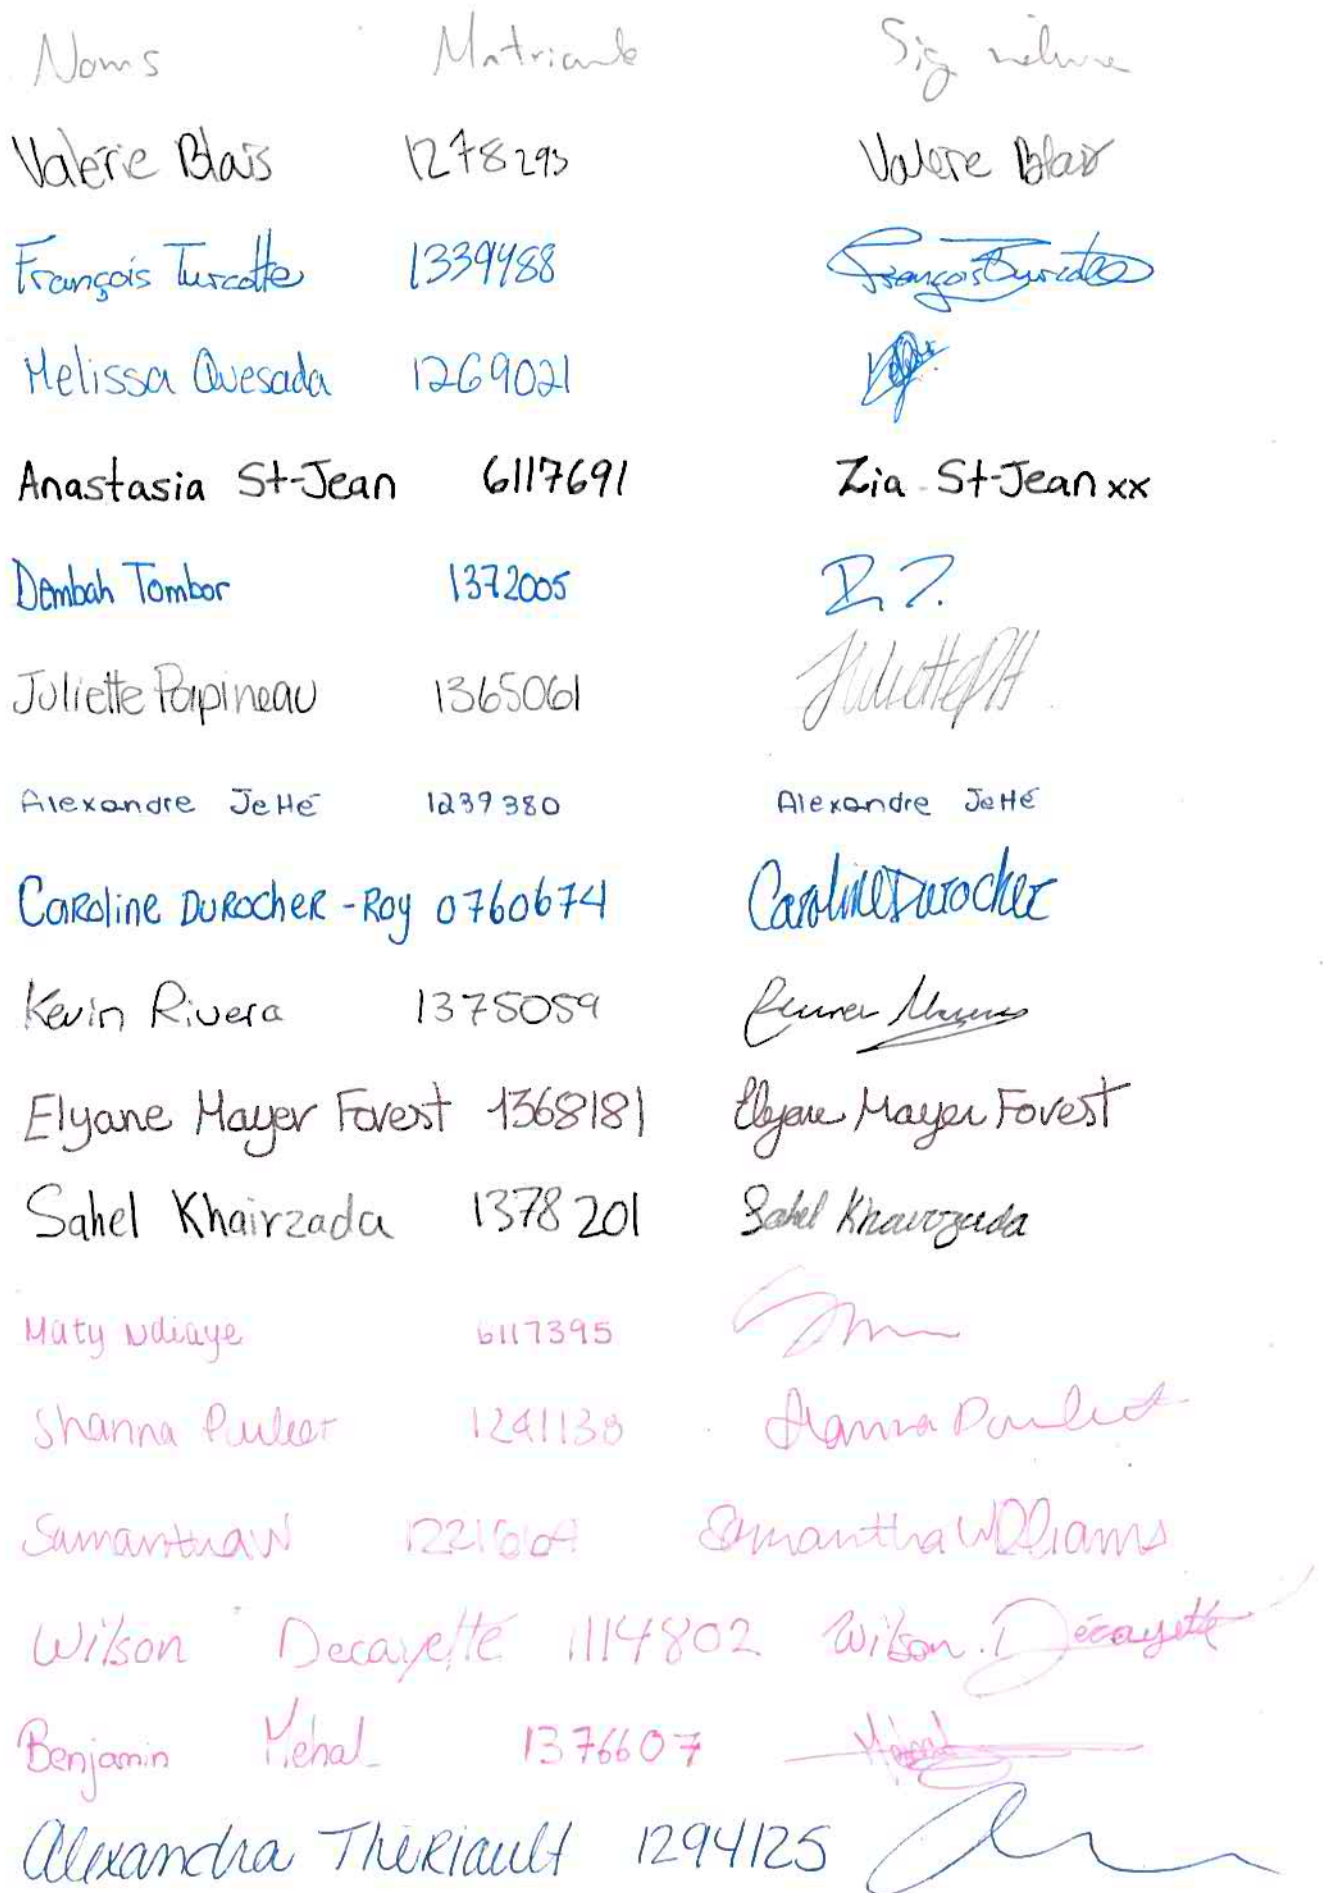 Noms Matricule Signature
Valérie Blais 1278293 Valérie Blais
François Turcotte 1339488 François Turcotte
Melissa Quesada 1269021
Anastasia St-Jean 6117691 Zia St-Jean xx
Dembah Tombor 1372005 D.T.
Juliette Papineau 1365061 Juliette PH
Alexandre Jetté 1239380 Alexandre Jetté
Caroline Durocher-Roy 0760674 Caroline Durocher
Kevin Rivera 1375059
Elyane Mayer Forest 1368181 Elyane Mayer Forest
Sahel Khairzada 1378201 Sahel Khairzada
Maty Ndiaye 6117395
Shanna Paulet 1241138 Shanna Paulet
Samantha W Samantha Williams
Wilson Decayette 1114802 Wilson. Décayette
Benjamin Mehal 1376607 Mehal
Alexandra Theriault 1294125